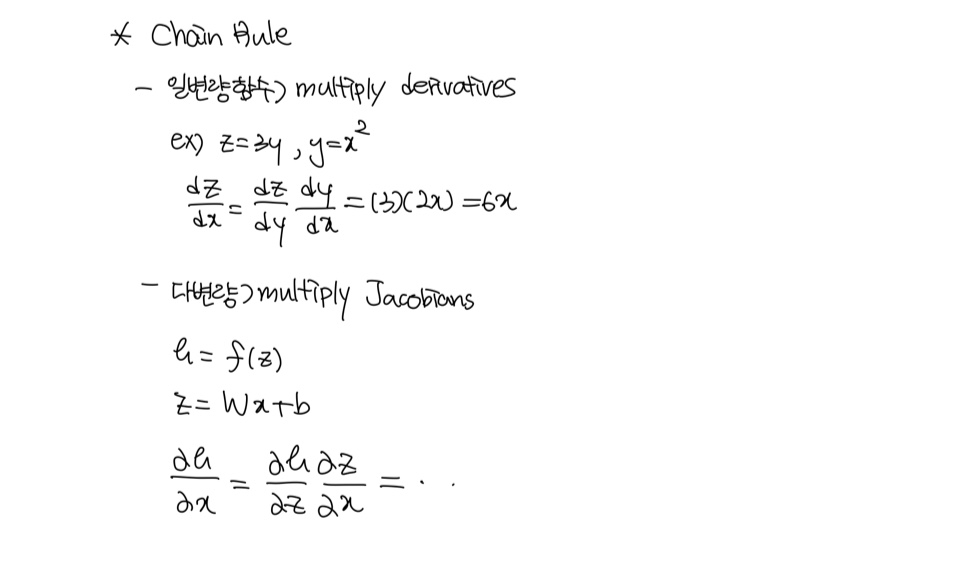 * Chain Rule
- 일변량함수) multiply derivatives
ex) z=3y, y=x²
dz/dx = dz/dy dy/dx = (3)(2x) = 6x
- 다변량) multiply Jacobians
h = f(z)
z = Wx+b
∂h/∂x = ∂h/∂z ∂z/∂x = ..